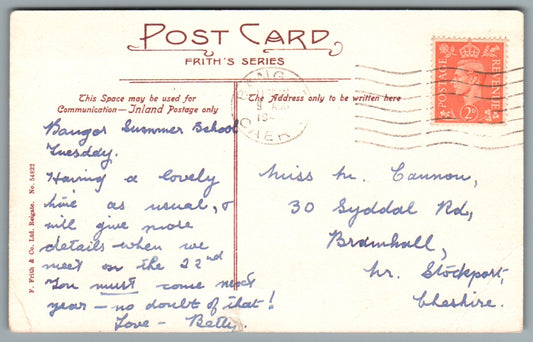 POST CARD
FRITH'S SERIES
This Space may be used for
Communication—Inland Postage only
The Address only to be written here
BANGOR
CAER
POSTAGE
REVENUE
2D
F. Frith & Co. Ltd. Reigate. No. 54822
Bangor Summer School
Tuesday.
Having a lovely
time as usual, &
will give more
details when we
meet on the 22nd
You must come next
year — no doubt of that!
Love - Betty.
Miss M. Cannon,
30 Syddal Rd,
Bramhall,
Nr. Stockport,
Cheshire.